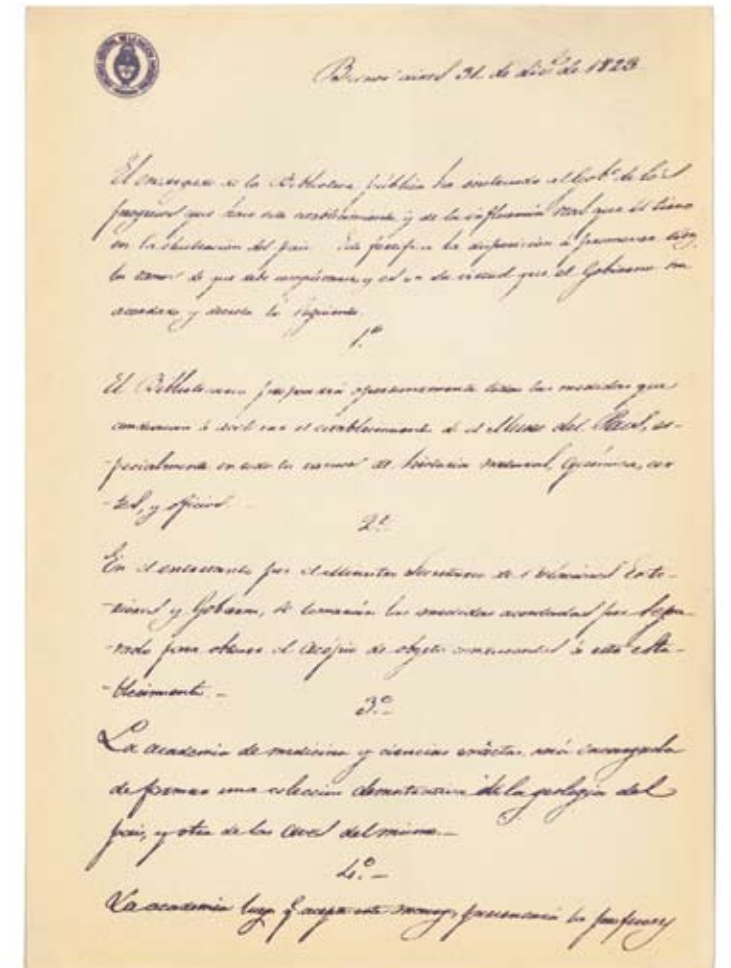 Buenos aires 31. de dic.e de 1823
El encargado de la Biblioteca pública ha instruido al Gob.o de los
progresos que hace este establecimiento y de la influencia real que él tiene
en la ilustracion del pais. Esto justifica la disposicion á promover todos
los ramos de que debe componerse, y es en su virtud que el Gobierno ha
acordado y decreta lo siguiente.
1.o
El Bibliotecario propondrá oportunamente todas las medidas que
conduzcan á el establecimiento de el Museo del Pais, es-
pecialmente en todos los ramos de historia natural, Química, ar-
-tes, y oficios. _
2.o
En el entretanto por el Ministro Secretario de Relaciones Exte-
-riores y Gobierno, se tomarán las medidas acordadas por sepa-
-rado para obtener el acópio de objetos á este esta-
-blecimiento. _
3.o
La academia de medicina y ciencias exáctas, será encargada
de formar una coleccion demostrativa de la geologia del
pais, y otra de las aves del mismo. _
4.o _
La academia luego q. acepte este encargo, presentará los profesores